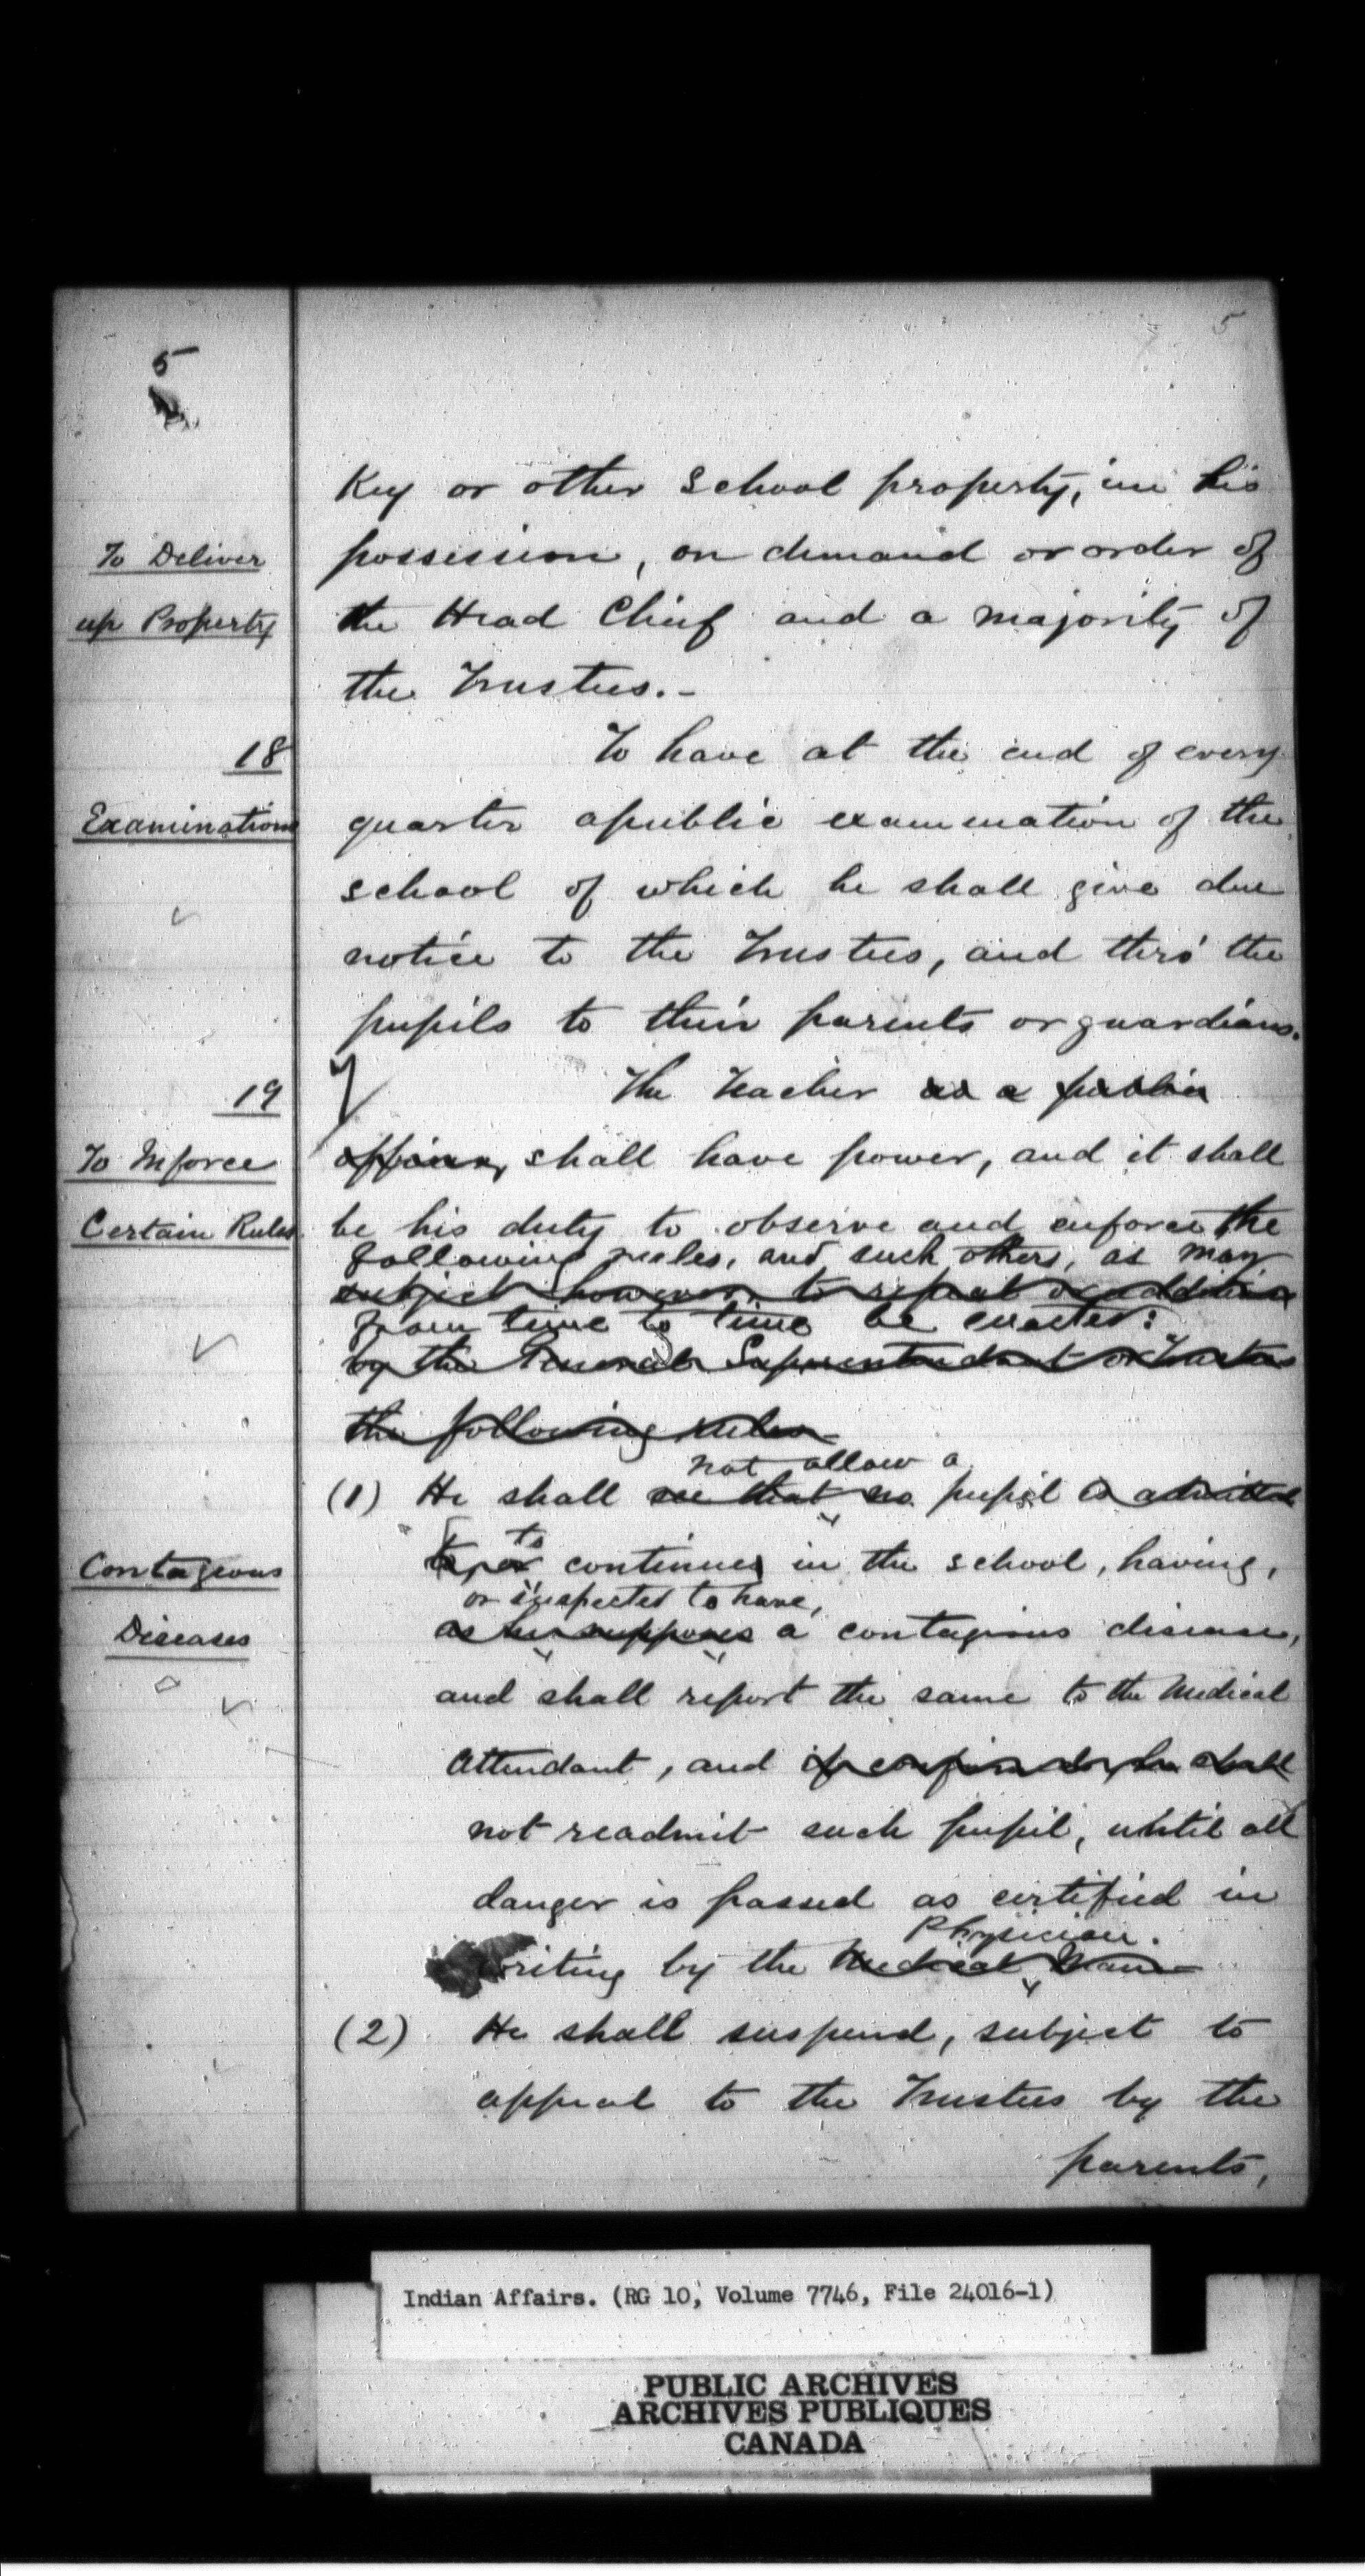 5
5
Key or other School property, in his
To Deliver
possession, on demand or order of
up Property
the Head Chief and a majority of
the Trustees.-
18
To have at the end of every
Examinations
quarter a public examination of the
school of which he shall give due
notice to the Trustees, and thro' the
pupils to their parents or guardians.
19
The Teacher as a public
To Inforce
officer, shall have power, and it shall
Certain Rules
be his duty to observe and enforce the
following rules, and such others, as may
subject however to repeal or addition
from time to time be enacted:
by the General Superintendent or Trustees
the following rules
not allow a
(1) He shall see that no pupil is admitted
to
to or continues in the school, having,
Contagious
or suspected to have,
Diseases
as he supposes a contagious disease,
and shall report the same to the Medical
Attendant, and if confirmed, he shall
not readmit such pupil, until all
danger is passed as certified in
Physician.
writing by the Medical Man
(2) He shall suspend, subject to
appeal to the Trustees by the
parents,
Indian Affairs. (RG 10, Volume 7746, File 24016-1)
PUBLIC ARCHIVES
ARCHIVES PUBLIQUES
CANADA